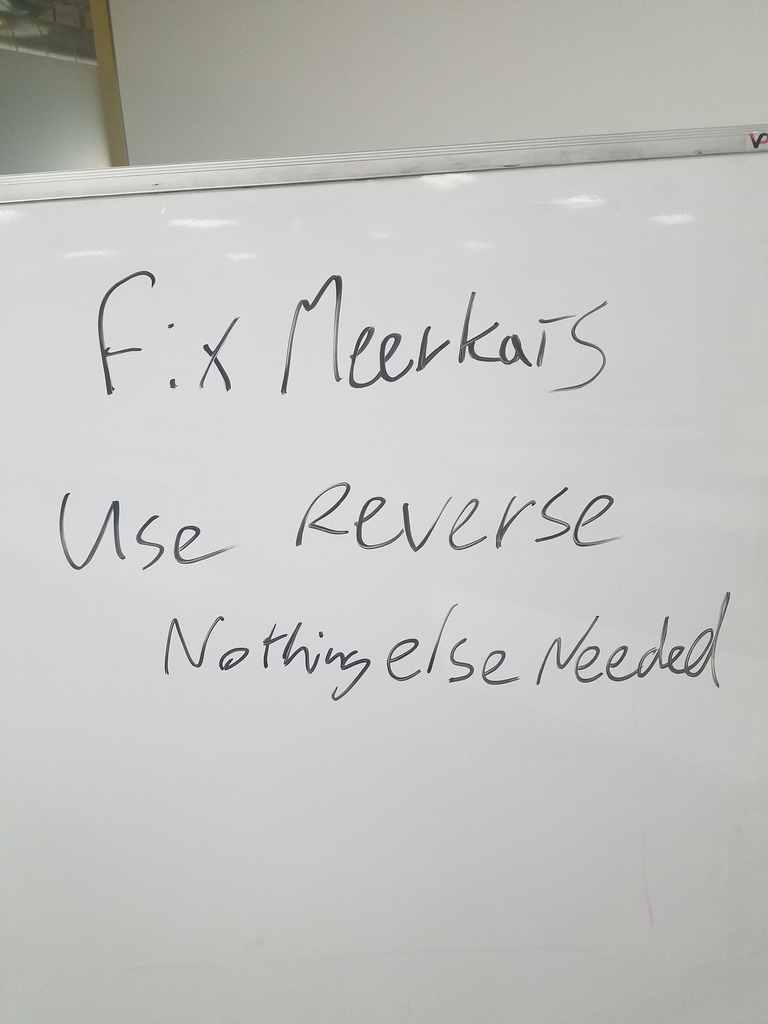 Fix Meerkats
Use Reverse
Nothing else Needed